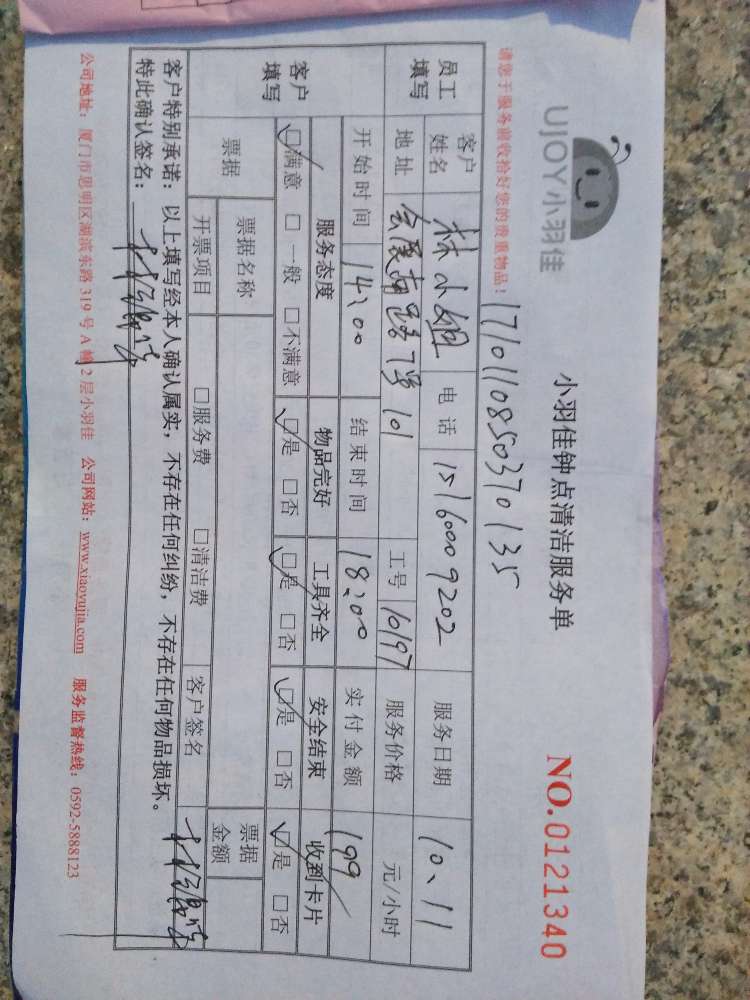 UJOY小羽佳
小羽佳钟点清洁服务单
NO.0121340
请您于服务前收拾好您的贵重物品！
1710110850370135
员工填写 客户姓名 林小姐 电话 15160009202 服务日期 10、11
地址 会展南路7号101 工号 10197 服务价格 元/小时
开始时间 14:00 结束时间 18:00 实付金额 199
客户填写 服务态度 物品完好 工具齐全 安全结束 收到卡片
☑满意 □一般 □不满意 ☑是 □否 ☑是 □否 ☑是 □否 ☑是 □否
票据 票据名称 票据金额
开票项目 □服务费 □清洁费 客户签名
客户特别承诺：以上填写经本人确认属实，不存在任何纠纷，不存在任何物品损坏。
特此确认签名：
公司地址：厦门市思明区湖滨东路319号A幢2层小羽佳 公司网站：www.xiaoyujia.com 服务监督热线：0592-5888123